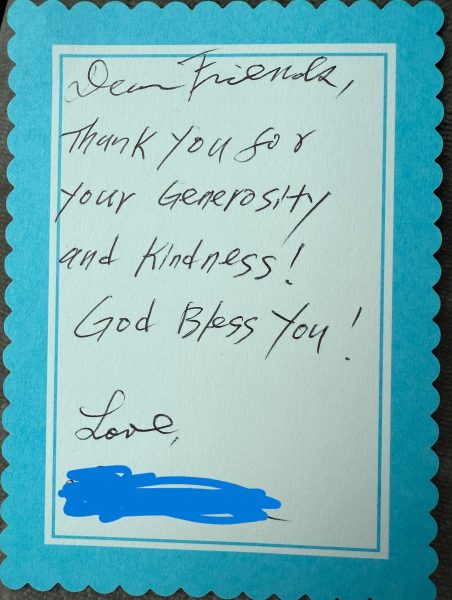 Dear Friends,
Thank you for
your Generosity
and Kindness!
God Bless You!
Love,